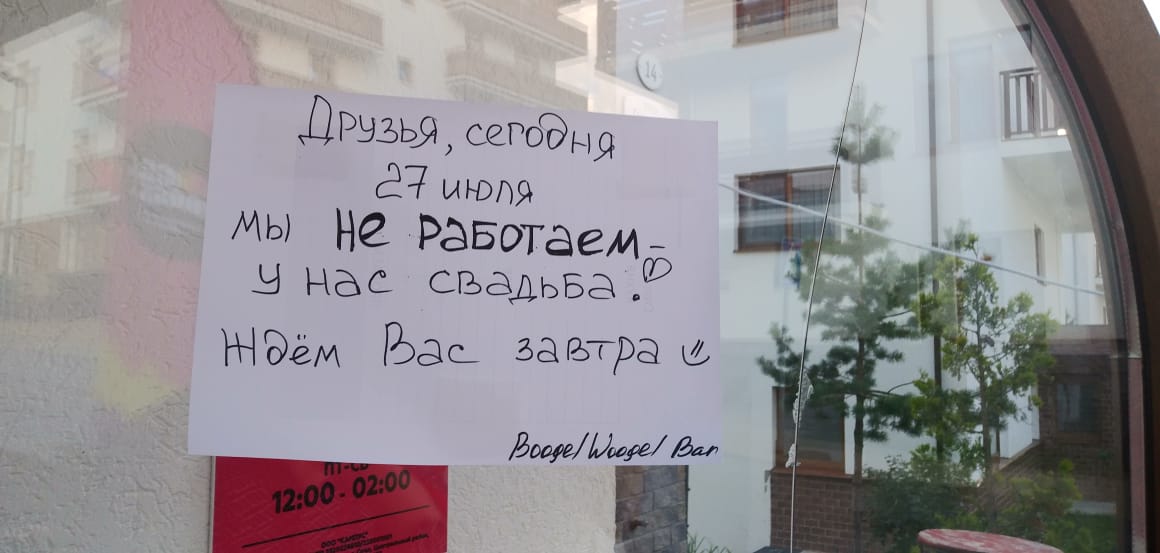 14
Друзья, сегодня
27 июля
мы не работаем –
у нас свадьба!
Ждём Вас завтра
Boogel Woogel Bar
ПТ-СБ
12:00 - 02:00
ООО "КАРТЭС"